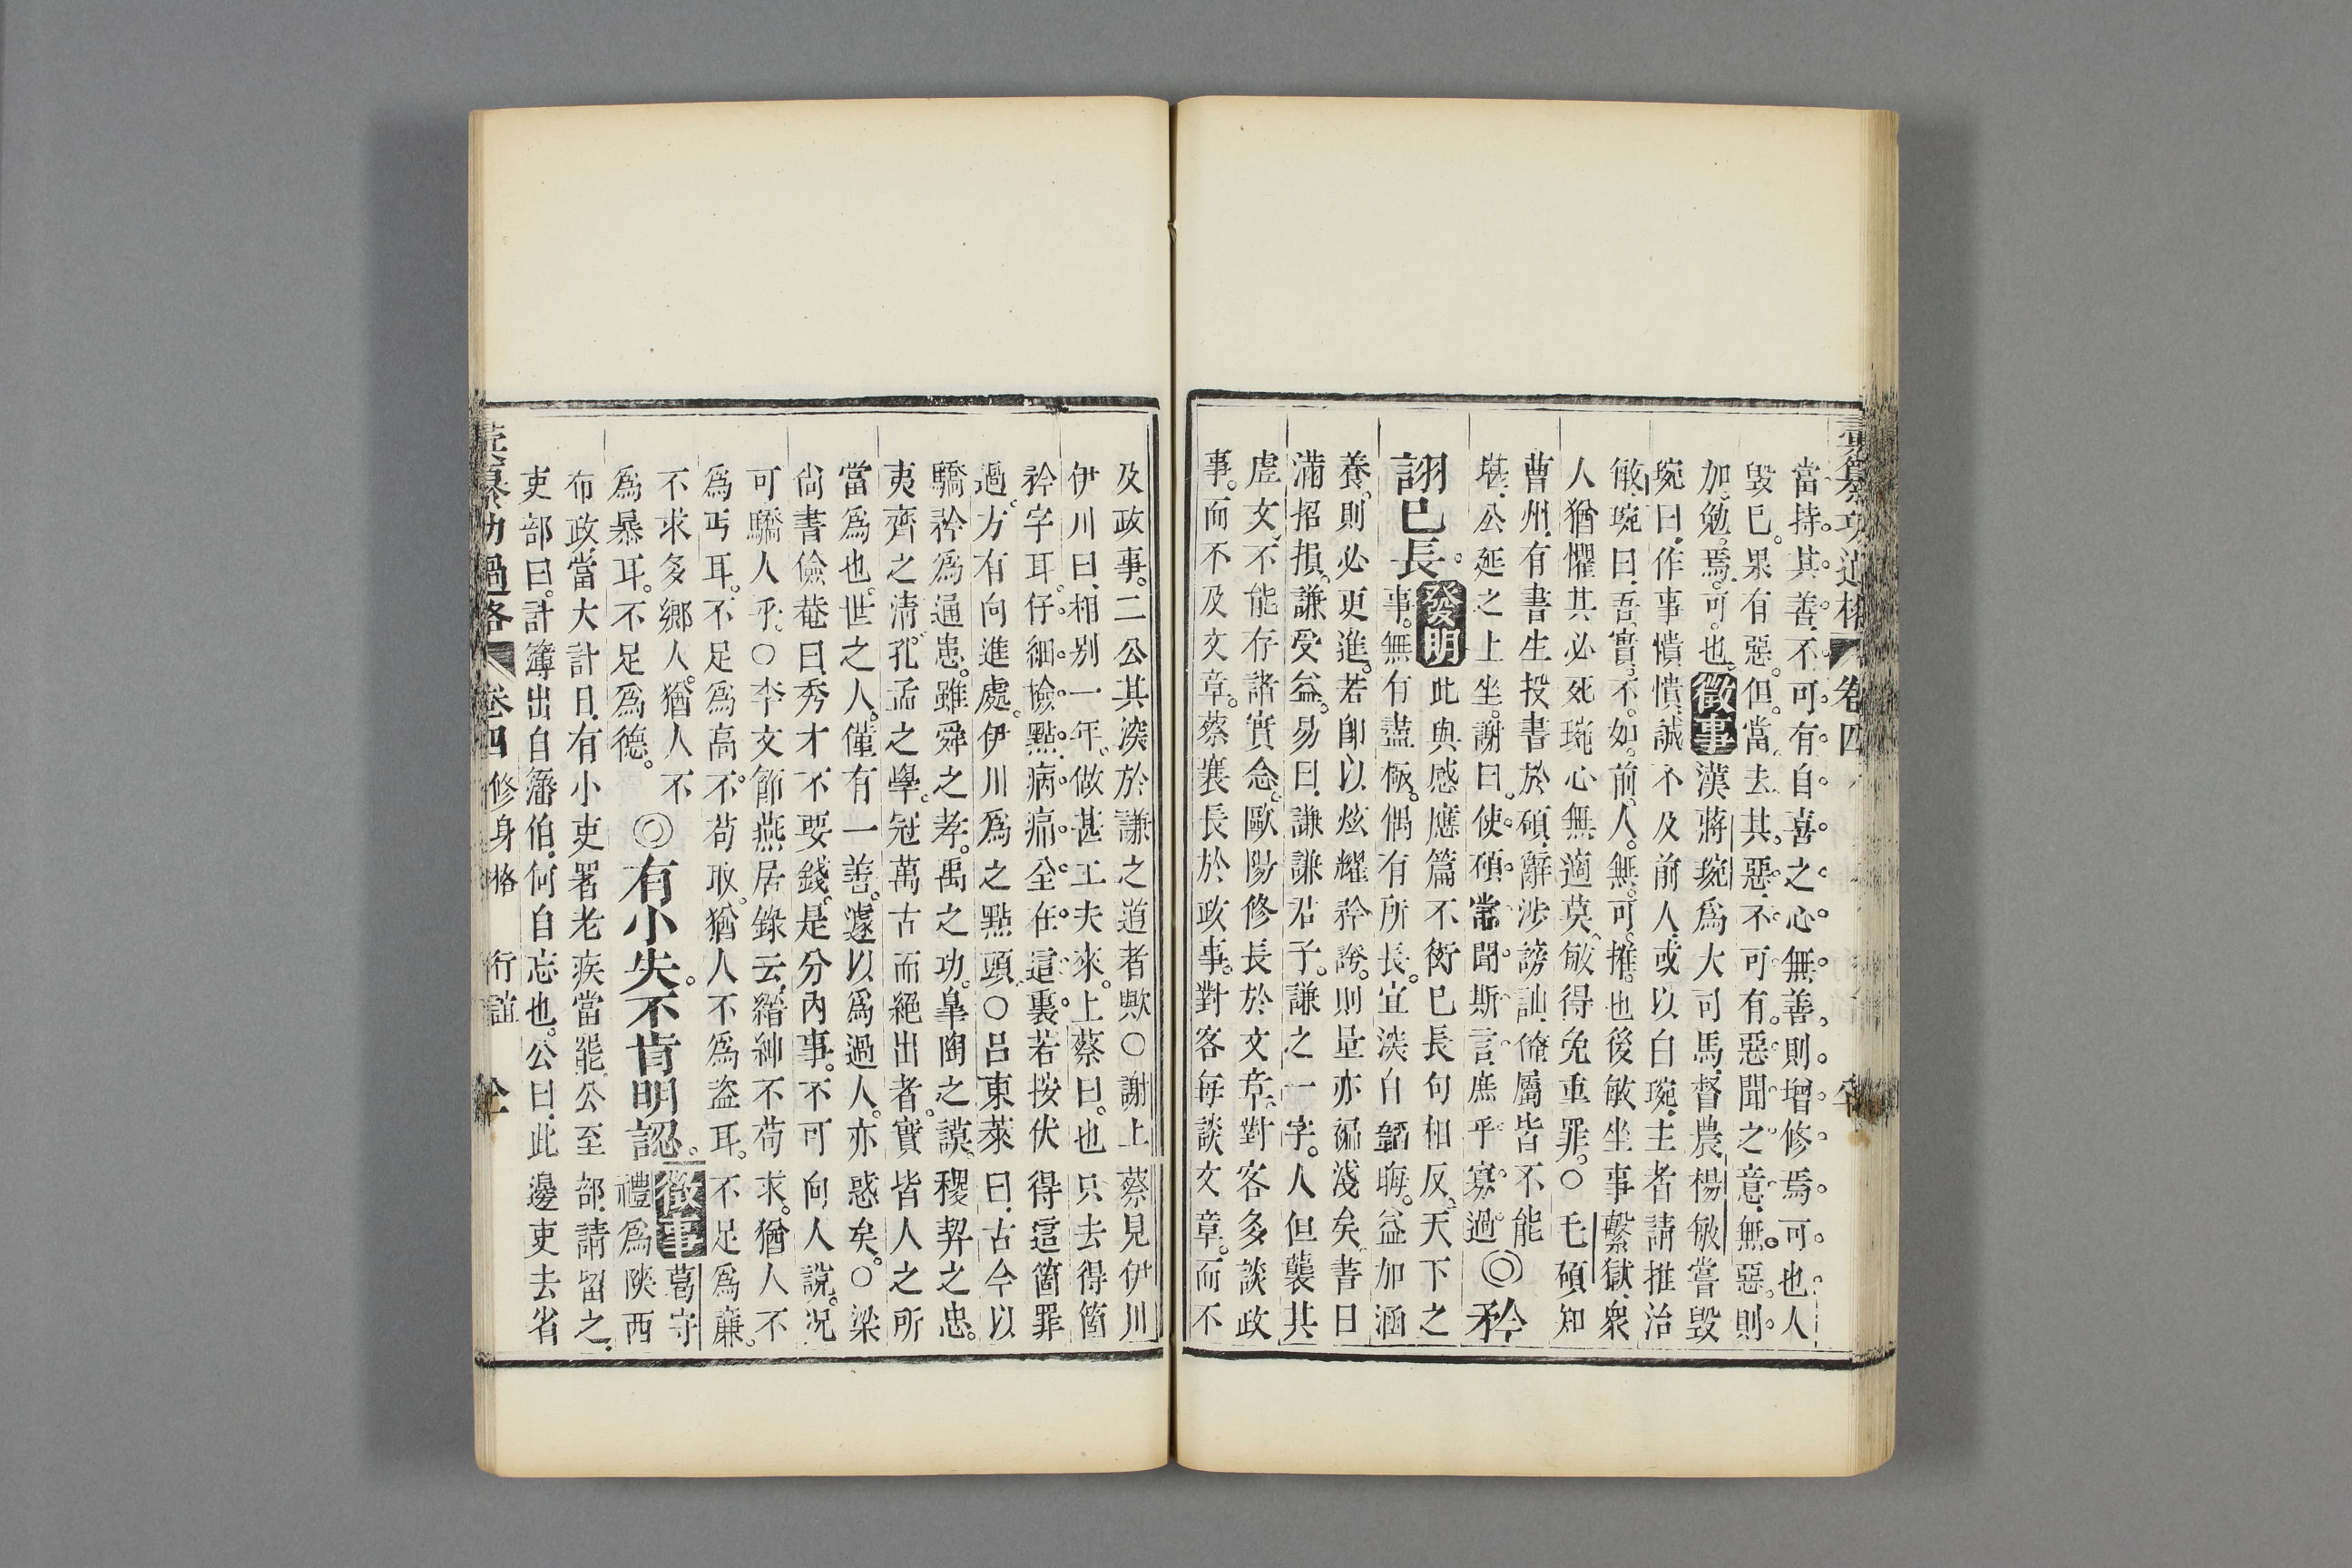 彙纂功過格 卷四
當持其善不可有自喜之心無善則增修焉可也人
毀已果有惡但當去其惡不可有惡聞之意無惡則
加勉焉可也徵事漢蔣琬爲大司馬督農楊敏嘗毀
琬曰作事憒憒誠不及前人或以白琬主者請推治
敏琬曰吾實不如前人無可推也後敏坐事繫獄衆
人猶懼其必死琬心無適莫敏得免重罪○毛碩知
曹州有書生投書於碩辭涉謗訕僚屬皆不能
堪公延之上坐謝曰使碩常聞斯言庶乎寡過◎矜
詡已長發明此與感應篇不衒已長句相反天下之
事無有盡極偶有所長宜淡自韜晦益加涵
養則必更進若即以炫耀矜誇則量亦褊淺矣書曰
滿招損謙受益易曰謙謙君子謙之一字人但襲其
虛文不能存諸實念歐陽修長於文章對客多談政
事而不及文章蔡襄長於政事對客每談文章而不
及政事二公其深於謙之道者歟○謝上蔡見伊川
伊川曰相別一年做甚工夫來上蔡曰也只去得箇
矜字耳仔細檢點病痛全在這裏若按伏得這箇罪
過方有向進處伊川爲之點頭○呂東萊曰古今以
驕矜爲通患雖舜之孝禹之功臯陶之謨稷契之忠
夷齊之淸孔孟之學冠萬古而絕出者實皆人之所
當爲也世之人僅有一善遽以爲過人亦惑矣○梁
尙書儉菴曰秀才不要錢是分內事不可向人說況
可驕人乎○李文節燕居錄云縉紳不苟求猶人不
爲丐耳不足爲高不苟取猶人不爲盜耳不足爲廉
不求多鄉人猶人不
爲暴耳不足爲德◎有小失不肯明認徵事葛守
禮爲陝西
布政當大計日有小吏署老疾當罷公至部請留之
吏部曰計簿出自藩伯何自忘也公曰此邊吏去省
彙纂功過格 卷四 修身格 行誼